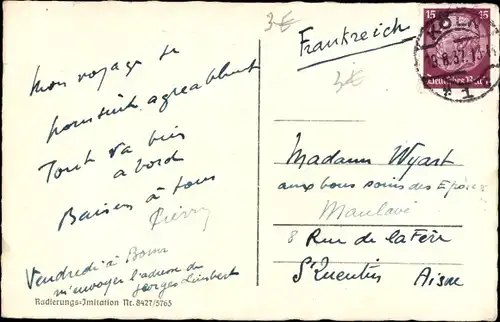 3€
Frankreich
3€
15 15
Deutsches Reich
KÖLN
1
Mon voyage se
poursuit agréablement
Tout va bien
a bord
Baisers à tous
Pierre
Vendredi à Bonn
m'envoyer l'adresse de
Georges Limbert
Madame Wyart
aux bons soins des
8 Rue de la Fère
St Quentin Aisne
Radierungs=Imitation Nr. 8427/5765